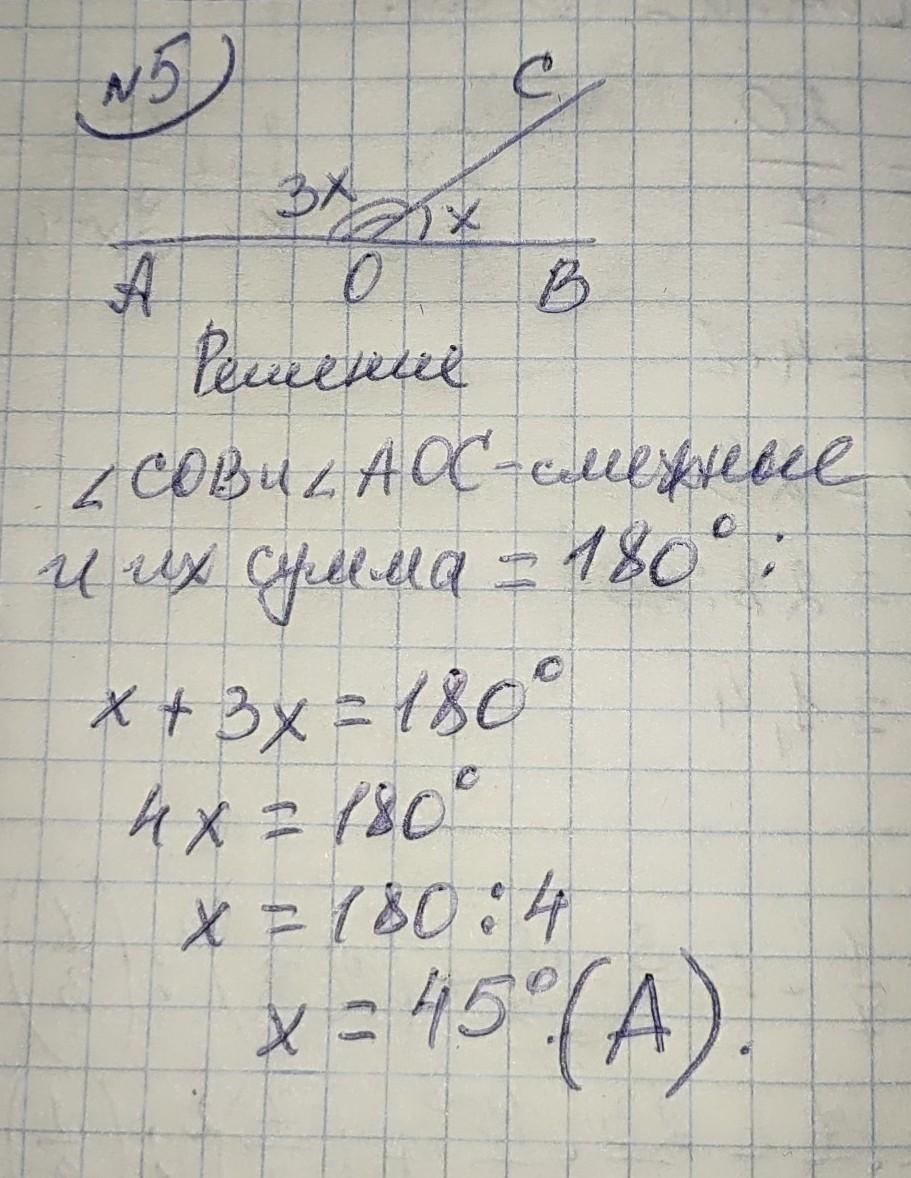 №5)
C
3x
x
A O B
Решение
∠COB и ∠AOC - смежные
и их сумма = 180° :
x + 3x = 180°
4x = 180°
x = 180 : 4
x = 45°. (A).